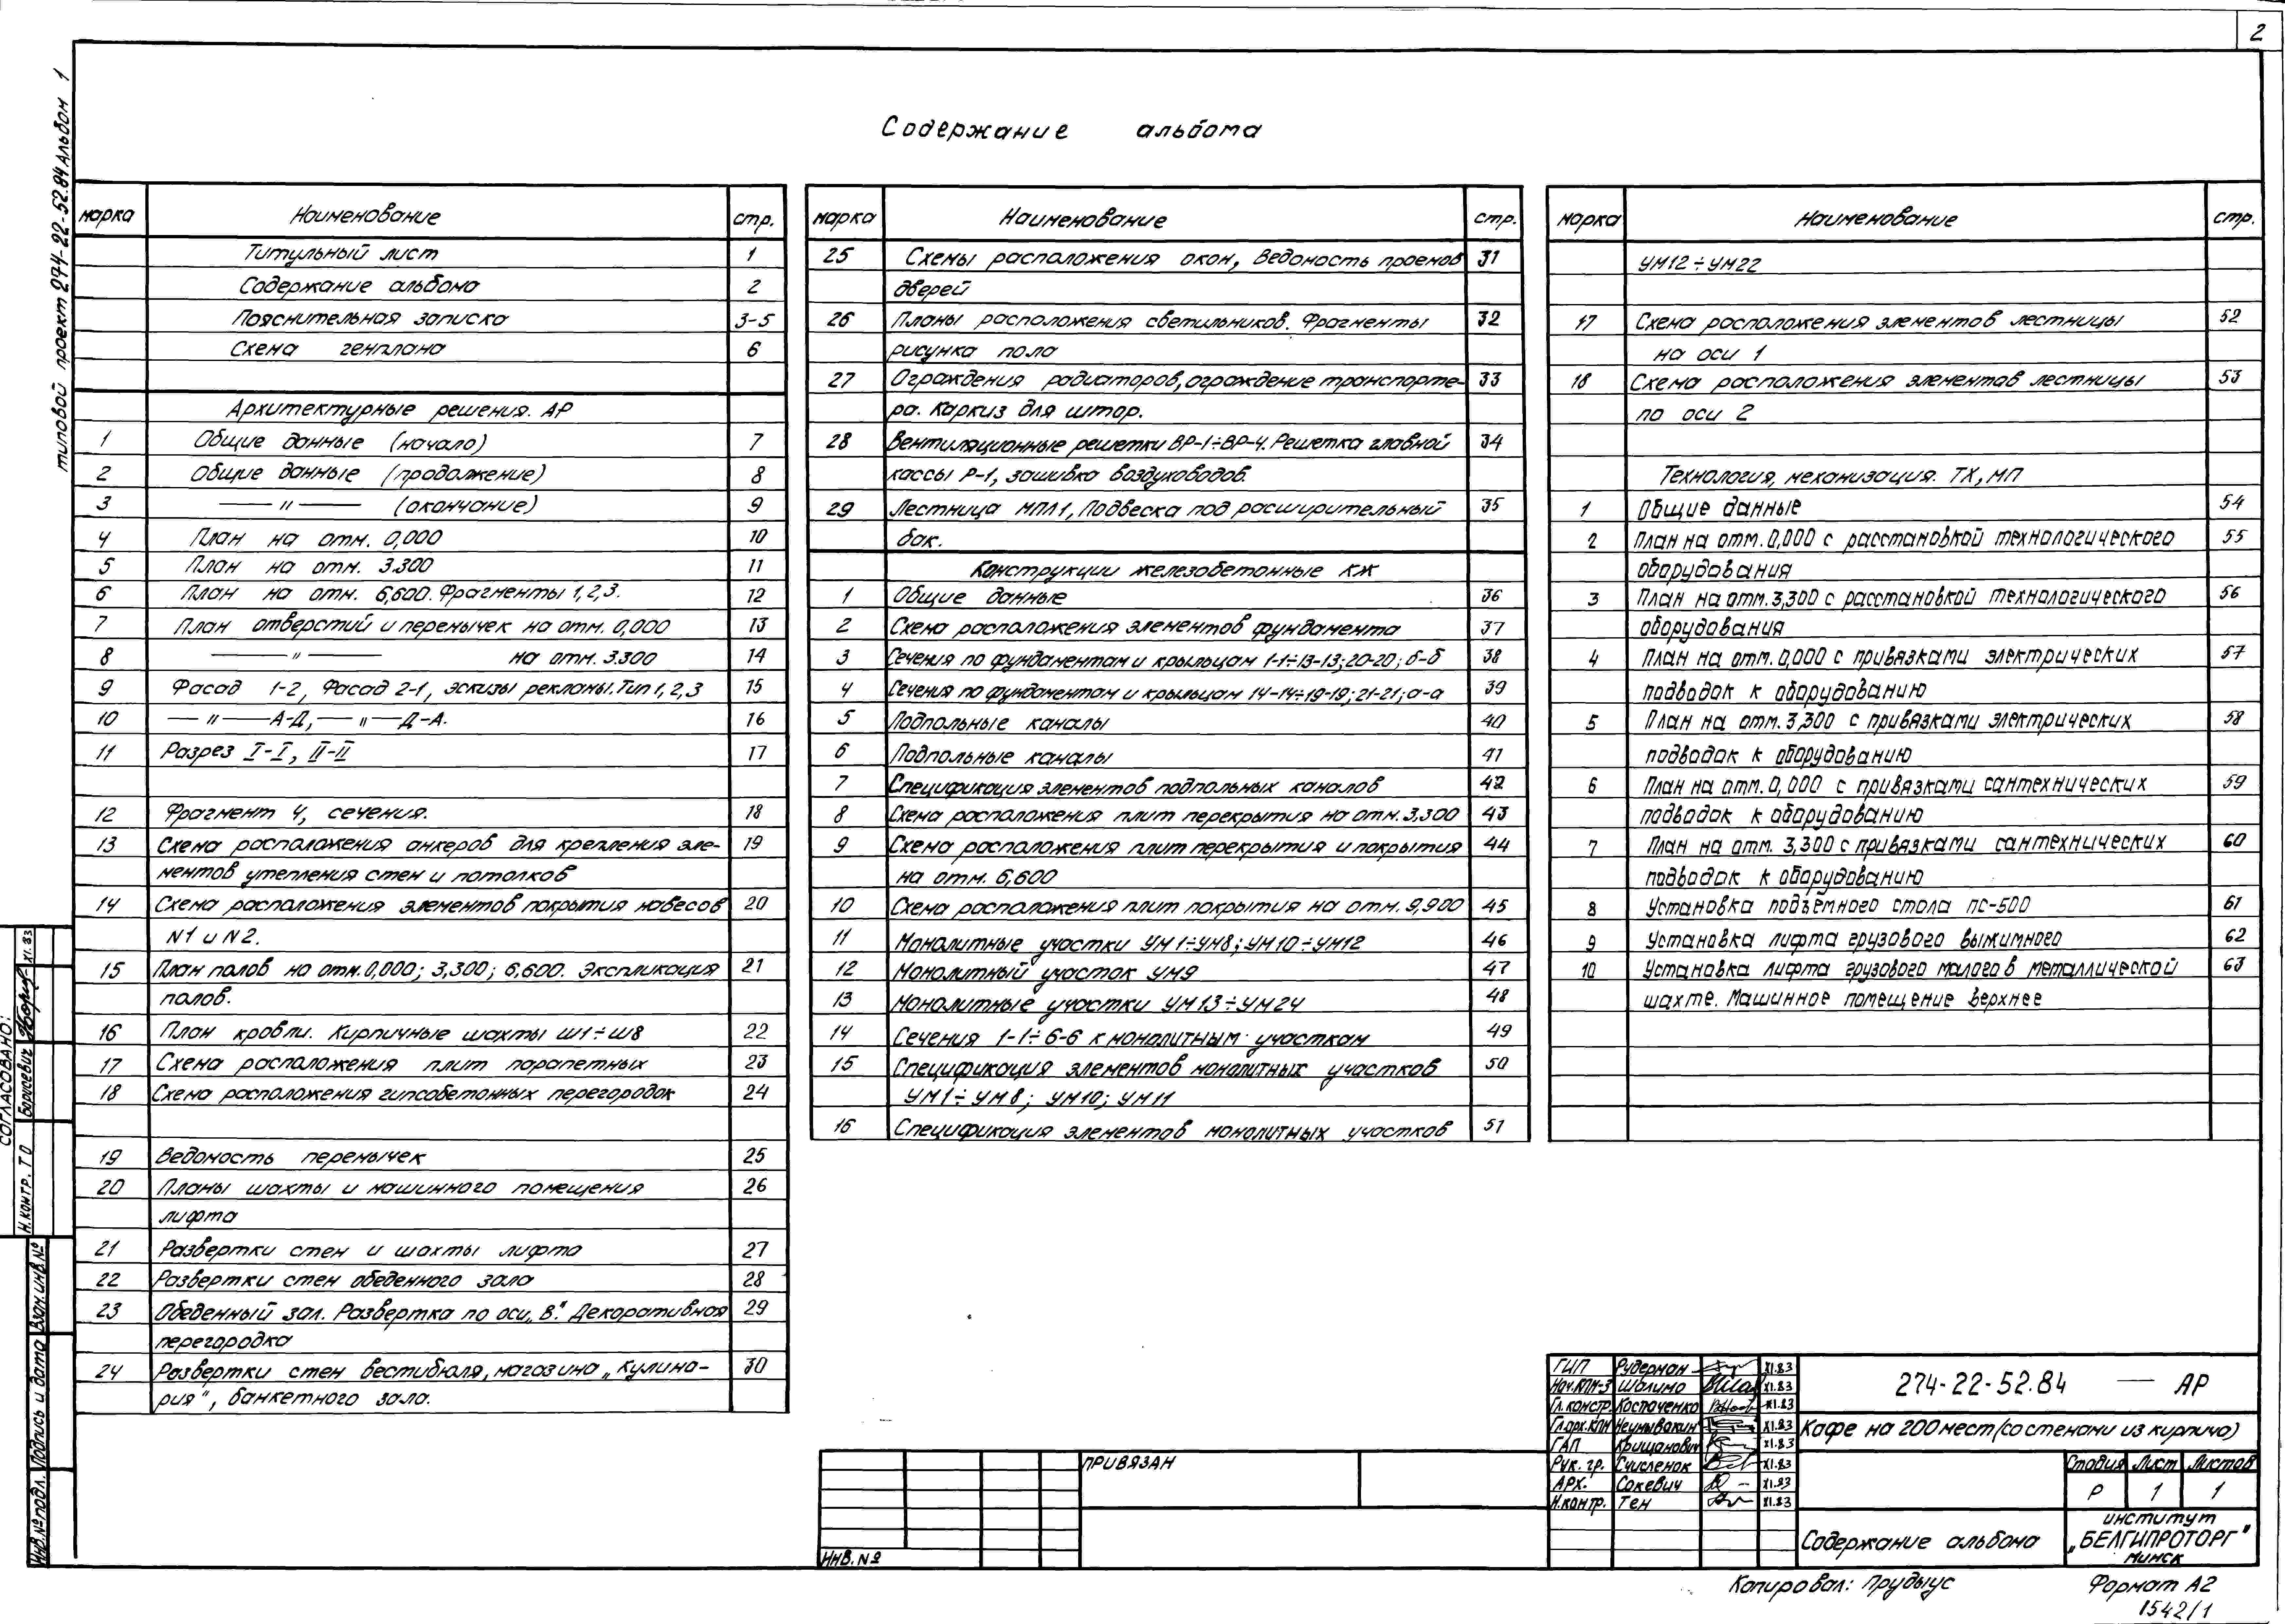 2
типовой проект 274-22-52.84 Альбом 1
Содержание альбома
марка Наименование стр.
Титульный лист 1
Содержание альбома 2
Пояснительная записка 3-5
Схема генплана 6
Архитектурные решения. АР
1 Общие данные (начало) 7
2 Общие данные (продолжение) 8
3 —— " —— (окончание) 9
4 План на отм. 0,000 10
5 План на отм. 3.300 11
6 План на отм. 6,600. Фрагменты 1,2,3. 12
7 План отверстий и перемычек на отм. 0,000 13
8 —— " —— на отм. 3.300 14
9 Фасад 1-2, Фасад 2-1, эскизы рекламы. Тип 1, 2, 3 15
10 — " — А-Д, — " — Д-А. 16
11 Разрез I-I, II-II 17
12 Фрагмент 4, сечения. 18
13 Схема расположения анкеров для крепления эле- 19
ментов утепления стен и потолков
14 Схема расположения элементов покрытия навесов 20
N1 и N2.
15 План полов на отм. 0,000; 3,300; 6,600. Экспликация 21
полов.
16 План кровли. Кирпичные шахты Ш1÷Ш8 22
17 Схема расположения плит парапетных 23
18 Схема расположения гипсобетонных перегородок 24
19 Ведомость перемычек 25
20 Планы шахты и машинного помещения 26
лифта
21 Развертки стен и шахты лифта 27
22 Развертки стен обеденного зала 28
23 Обеденный зал. Развертка по оси „В". Декоративная 29
перегородка
24 Развертки стен вестибюля, магазина „Кулина- 30
рия", банкетного зала.
марка Наименование стр.
25 Схемы расположения окон, Ведомость проемов 31
дверей
26 Планы расположения светильников. Фрагменты 32
рисунка пола
27 Ограждения радиаторов, ограждение транспорте- 33
ра. Каркиз для штор.
28 Вентиляционные решетки ВР-1÷ВР-4. Решетка главной 34
кассы Р-1, зашивка воздуховодов.
29 Лестница МПЛ1, Подвеска под расширительный 35
бак.
Конструкции железобетонные КЖ
1 Общие данные 36
2 Схема расположения элементов фундамента 37
3 Сечения по фундаментам и крыльцам 1-1÷13-13; 20-20; б-б 38
4 Сечения по фундаментам и крыльцам 14-14÷19-19; 21-21; а-а 39
5 Подпольные каналы 40
6 Подпольные каналы 41
7 Спецификация элементов подпольных каналов 42
8 Схема расположения плит перекрытия на отм. 3,300 43
9 Схема расположения плит перекрытия и покрытия 44
на отм. 6,600
10 Схема расположения плит покрытия на отм. 9,900 45
11 Монолитные участки УМ1÷УМ8; УМ10÷УМ12 46
12 Монолитный участок УМ9 47
13 Монолитные участки УМ13÷УМ24 48
14 Сечения 1-1÷6-6 к монолитным участкам 49
15 Спецификация элементов монолитных участков 50
УМ1÷УМ8; УМ10; УМ11
16 Спецификация элементов монолитных участков 51
марка Наименование стр.
УМ12÷УМ22
17 Схема расположения элементов лестницы 52
на оси 1
18 Схема расположения элементов лестницы 53
по оси 2
Технология, механизация. ТХ, МП
1 Общие данные 54
2 План на отм. 0,000 с расстановкой технологического 55
оборудования
3 План на отм. 3,300 с расстановкой технологического 56
оборудования
4 План на отм. 0,000 с привязками электрических 57
подводок к оборудованию
5 План на отм. 3,300 с привязками электрических 58
подводок к оборудованию
6 План на отм. 0,000 с привязками сантехнических 59
подводок к оборудованию
7 План на отм. 3,300 с привязками сантехнических 60
подводок к оборудованию
8 Установка подъемного стола ПС-500 61
9 Установка лифта грузового выжимного 62
10 Установка лифта грузового малого в металлической 63
шахте. Машинное помещение верхнее
СОГЛАСОВАНО:
Н.КОНТР. ТО Борисевич XI.83
Инв.№ подл. Подпись и дата Взам.инв.№
ПРИВЯЗАН
ИНВ.№
ГИП Рудерман XI.83
Нач.КПМ-3 Шалимо XI.83
Гл.констр. Костюченко XI.83
Гл.арх.КПМ Неумывакин XI.83
ГАП Крищанович XI.83
Рук. гр. Счисленок XI.83
АРХ. Сакевич XI.83
Н.контр. Тен XI.83
274-22-52.84 — АР
Кафе на 200 мест (со стенами из кирпича)
Стадия Лист Листов
Р 1 1
Содержание альбома
институт
„БЕЛГИПРОТОРГ"
МИНСК
Копировал: Прудыус
Формат А2
1542/1